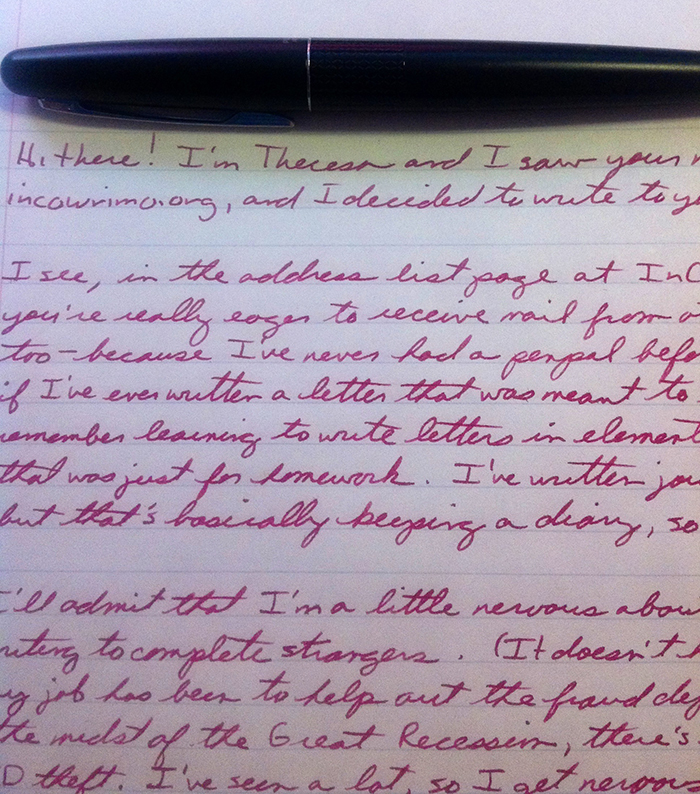 Hi there! I'm Theresa and I saw your
incowrimo.org, and I decided to write to
I see, in the address list page at
you're really eager to receive mail from
too - because I've never had a penpal
if I've ever written a letter that was meant to
remember learning to write letters in
that was just for homework. I've written
but that's basically keeping a diary, so
I'll admit that I'm a little nervous
to complete strangers. (It doesn't
job has been to help out the fraud
the midst of the Great Recession, there's
theft. I've seen a lot, so I get nervous